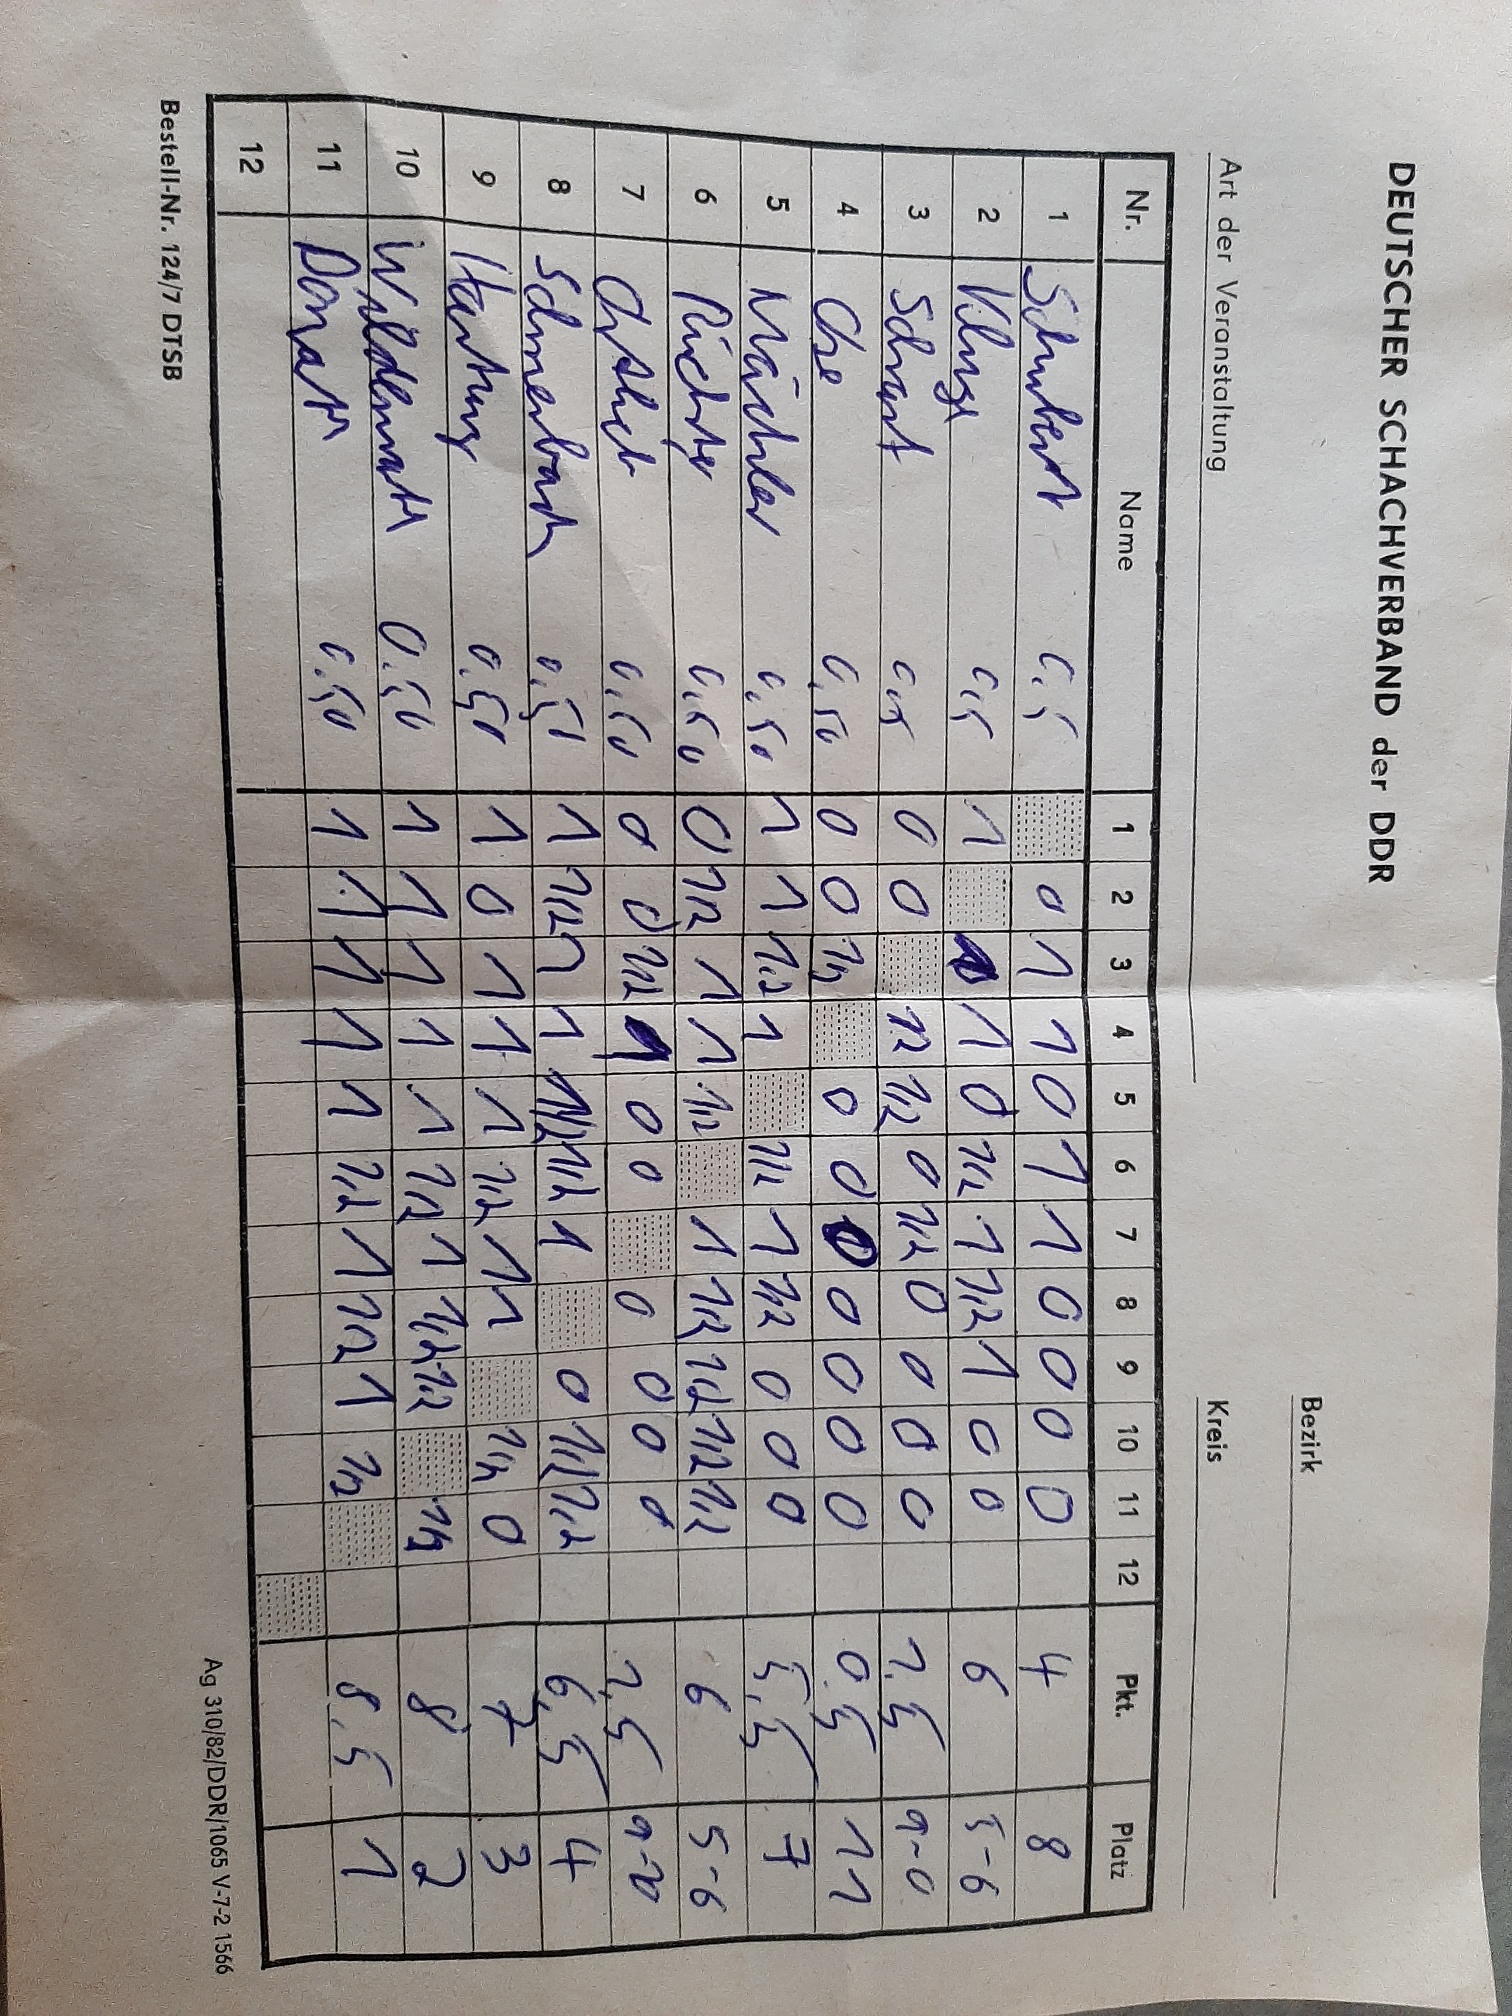 DEUTSCHER SCHACHVERBAND der DDR
Bezirk
Art der Veranstaltung Kreis
Nr. Name 1 2 3 4 5 6 7 8 9 10 11 12 Pkt. Platz
1 Schubert 0,5 0 1 1 0 1 1 0 0 0 0 4 8
2 Kluge 0,5 1 1 1 0 1/2 1 1/2 1 0 0 6 5-6
3 0,5 0 0 1/2 1/2 0 1/2 0 0 0 0 1.5 9-0
4 0,50 0 0 1/2 0 0 0 0 0 0 0 0.5 11
5 Mächler 0,50 1 1 1/2 1 1/2 1 1/2 0 0 0 5,5 7
6 Richter 0,50 0 1/2 1 1 1/2 1 1/2 1/2 1/2 1/2 6 5-6
7 0,50 0 0 1/2 1 0 0 0 0 0 0 1,5 9-10
8 0,50 1 1/2 1 1 1/2 1/2 1 0 1/2 1/2 6,5 4
9 Hartung 0,50 1 0 1 1 1 1/2 1 1 1/2 0 7 3
10 Wildenrath 0,50 1 1 1 1 1 1/2 1 1/2 1/2 1/2 8 2
11 Donath 0,50 1 1 1 1 1 1/2 1 1/2 1 1/2 8,5 1
12
Bestell-Nr. 124/7 DTSB Ag 310/82/DDR/1065 V-7-2 1566